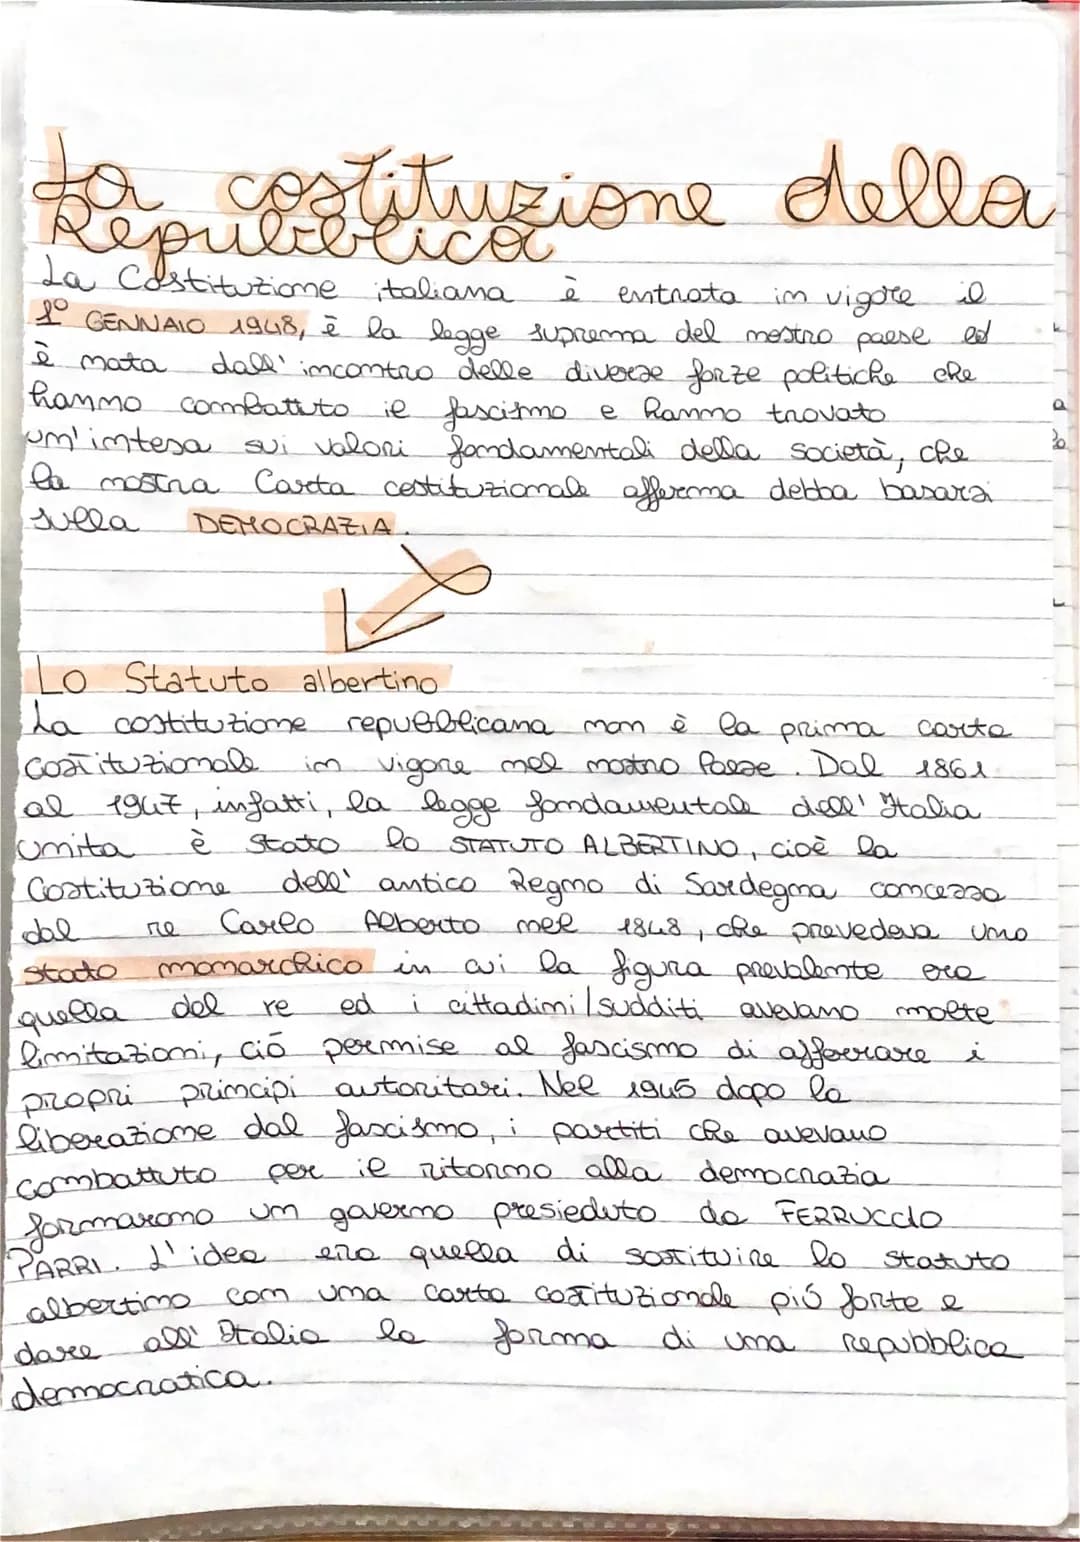 La costituzione della
Repubblica
La Costituzione italiana è entrata in vigore il
1° GENNAIO 1948, è la legge suprema del nostro paese ed
è nata dall'incontro delle diverse forze politiche che
hanno combattuto il fascismo e hanno trovato
un'intesa sui valori fondamentali della società, che
la nostra Carta costituzionale afferma debba basarsi
sulla DEMOCRAZIA.
Lo Statuto albertino
La costituzione repubblicana non è la prima carta
costituzionale in vigore nel nostro Paese. Dal 1861
al 1947, infatti, la legge fondamentale dell'Italia
unita è stato lo STATUTO ALBERTINO, cioè la
Costituzione dell'antico Regno di Sardegna concessa
dal re Carlo Alberto nel 1848, che prevedeva uno
stato monarchico in cui la figura prevalente era
quella del re ed i cittadini/sudditi avevano molte
limitazioni, ciò permise al fascismo di afferrare i
propri principi autoritari. Nel 1945 dopo la
liberazione dal fascismo, i partiti che avevano
combattuto per il ritorno alla democrazia
formarono un governo presieduto da FERRUCCIO
PARRI. L'idea era quella di sostituire lo statuto
albertino con una carta costituzionale più forte e
dare all'Italia la forma di una repubblica
democratica.